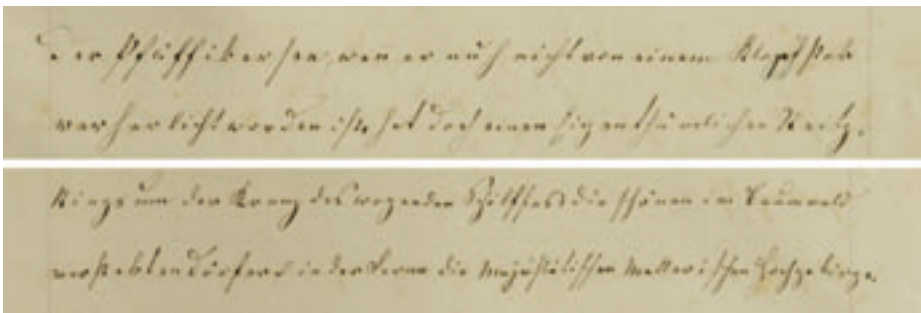 Der Pfäffikersee, wen er auch nicht von einem Klopfstok
verherlicht worden ist, hat doch einen eigenthümlichen Reitz.
Rings um der Kranz des wogenden Schilffes die schönen im Baumwald
verstekten Dörfer in der Ferne die Majestätischen Mallerischen Hochgebirge.